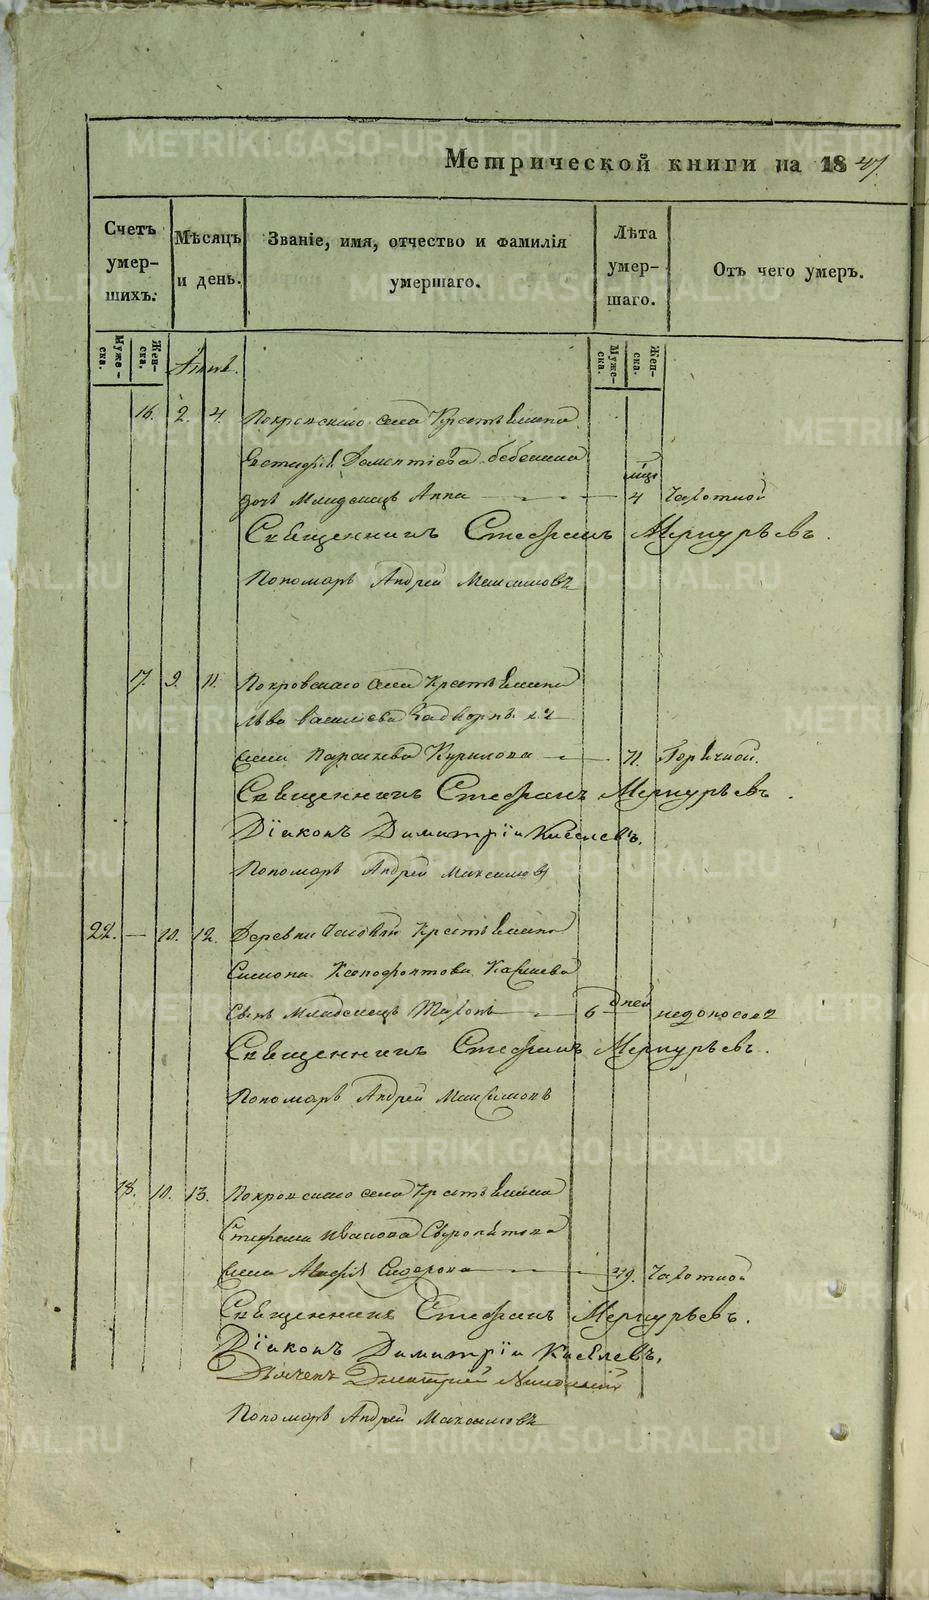 Метрической книги на 1847.
Счетъ умер-шихъ.
Мѣсяцъ и день.
Званіе, имя, отчество и фамилія умершаго.
Лѣта умер-шаго.
Отъ чего умеръ.
Муже-ска.
Жен-ска.
Муже-ска.
Жен-ска.
16. 2. 4. Покровскаго села Крестьянина
Евстафія Дометіева Бабкина мѣс
дочь Младенецъ Анна 4 Чахоткой
Священникъ Стефанъ Меркурьевъ.
Пономарь Андрей Максимовъ
17. 9. 11. Покровскаго села Крестьянина
Льва Васильева
жена Парасковья Кирилова 71. Горячкой.
Священникъ Стефанъ Меркурьевъ.
Діаконъ Димитрій Киселевъ.
Пономарь Андрей Максимовъ
22. — 10. 12. Деревни Часовой Крестьянина
Симона Ксенофонтова
Сынъ Младенецъ Тихонъ 6 дней недоносокъ
Священникъ Стефанъ Меркурьевъ.
Пономарь Андрей Максимовъ
18. 10. 13. Покровскаго села Крестьянина
Стефана Иванова
жена Агафія Сидорова 49. Чахоткой
Священникъ Стефанъ Меркурьевъ.
Діаконъ Димитрій Киселевъ.
Дьячекъ Дмитрій
Пономарь Андрей Максимовъ
METRIKI.GASO-URAL.RU